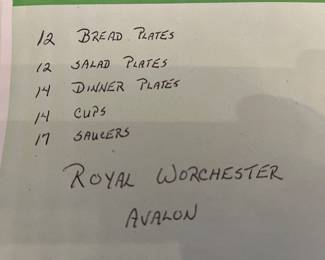 12 BREAD PLATES
12 SALAD PLATES
14 DINNER PLATES
14 CUPS
17 SAUCERS
ROYAL WORCHESTER
AVALON